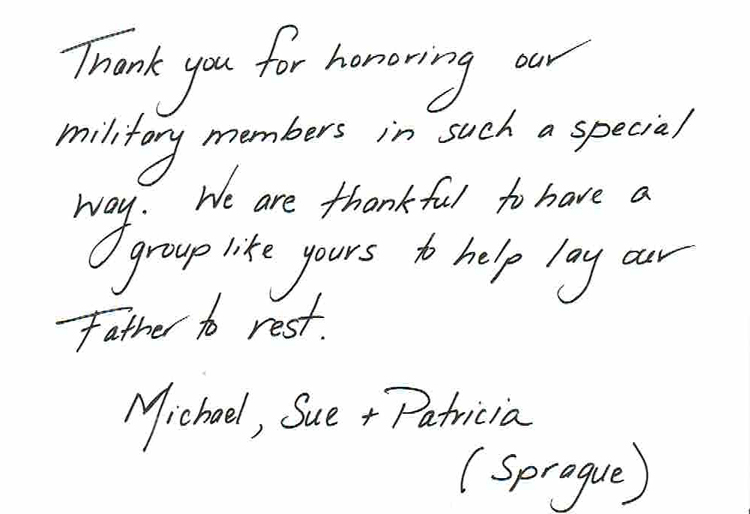 Thank you for honoring our
military members in such a special
way. We are thankful to have a
group like yours to help lay our
Father to rest.
Michael, Sue + Patricia
(Sprague)